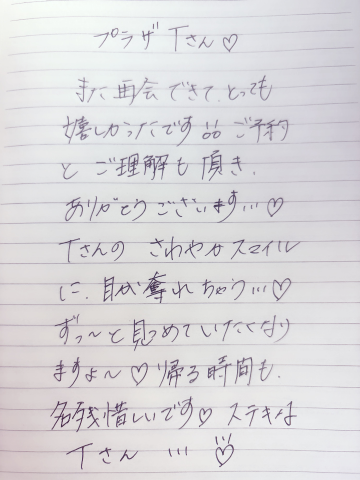 プラザ Tさん♡
また再会できて、とっても
嬉しかったです ご予約
と ご理解も 頂き、
ありがとうございます...♡
Tさんの さわやかスマイル
に、目が奪れちゃう...♡
ずっ〜と見つめていたくなり
ますよ〜♡ 帰る時間も、
名残惜しいです♡ ステキな
Tさん ...♡